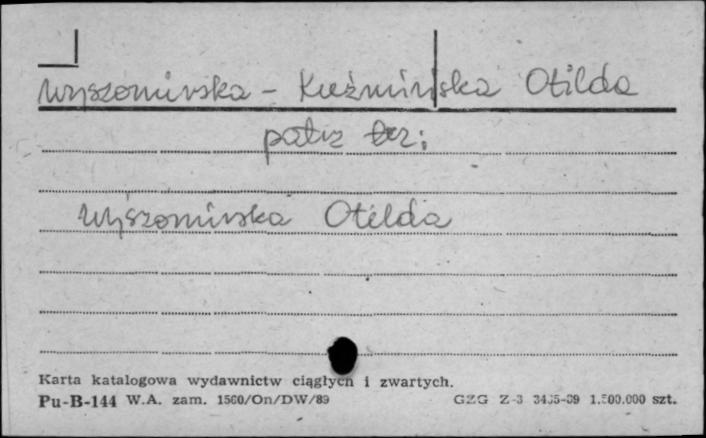 Wyszomirska - Kuźmińska Otilda
patrz też:
Wyszomirska Otilda
Karta katalogowa wydawnictw ciągłych i zwartych.
Pu-B-144 W.A. zam. 1560/On/DW/89 GZG Z-3 3435-89 1.500.000 szt.